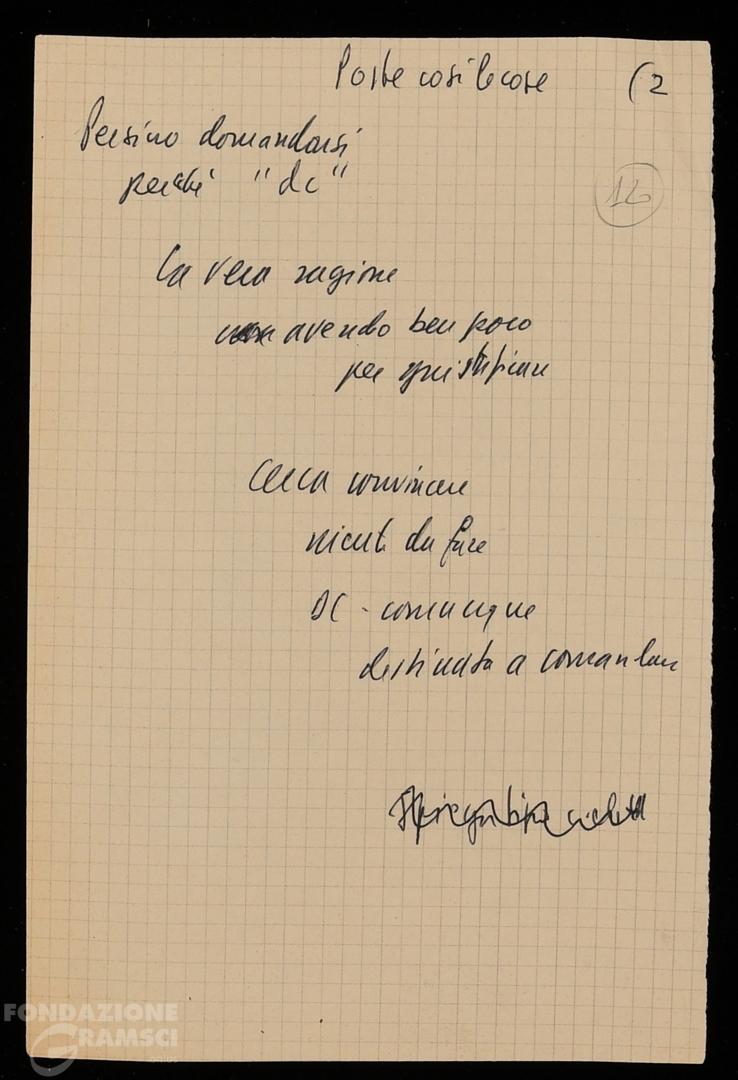 Poste così le cose (2
Persino domandarsi
perché "dc"
12
la vera ragione
avendo ben poco
per giustificare
Cerca convincere
niente da fare
DC - comunque
destinata a comandare
FONDAZIONE
GRAMSCI